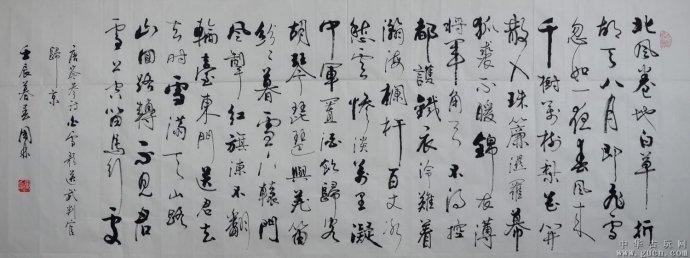 北風卷地白草折
胡天八月即飛雪
忽如一夜春風来
千樹萬樹梨花開
散入珠簾濕羅幕
狐裘不暖錦衾薄
将軍角弓不得控
都護鐵衣冷難着
瀚海欄杆百丈冰
愁雲惨淡萬里凝
中軍置酒飲歸客
胡琴琵琶與羌笛
紛紛暮雪下轅門
風掣紅旗凍不翻
輪臺東門送君去
去時雪滿天山路
山回路轉不見君
雪上空留馬行處
唐岑參詩白雪歌送武判官
歸京
壬辰暮春周
中华古玩网
www.gucn.com